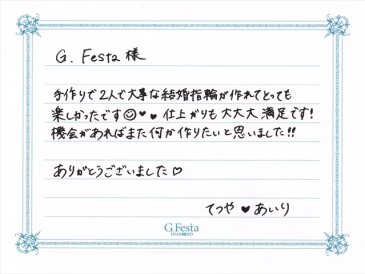 G. Festa 様
手作りで2人で大事な結婚指輪が作れてとっても
楽しかったです☺♥♥ 仕上がりも大大大満足です!
機会があればまた何か作りたいと思いました!!
ありがとうございました♡
てつや ♥ あいり
G.Festa
DIAMOND